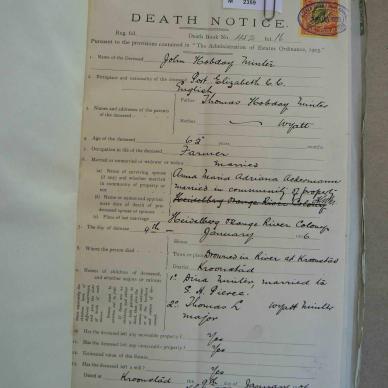 M 2359
DEATH NOTICE.
Reg. fol. Death Book No. fol. 16
Pursuant to the provisions contained in "The Administration of Estates Ordinance, 1905."
1. Name of the Deceased John Hobday Minter
2. Birthplace and nationality of the deceased Port Elizabeth C.C.
English
3. Names and addresses of the parents of the deceased
Father Thomas Hobday Minter
Mother Wyatt
4. Age of the deceased 62 years months
5. Occupation in life of the deceased Farmer
6. Married or unmarried or widower or widow married
(a) Name of surviving spouse (if any) and whether married in community of property or not
Anna Maria Adriana Ackermann
married in community of property
(b) Name or names and approximate date of death of pre-deceased spouse or spouses
Heidelberg Orange River Colony
(c) Place of last marriage Heidelberg Orange River Colony
7. The day of decease 9th January
8. Where the person died
House
Town or place Drowned in River at Kroonstad
District Kroonstad
9. Names of children of deceased, and whether majors or minors
1º Dina Minter, married to
S. H. Pierce
2º Thomas L Wyatt Minter
major
10. Has the deceased left any movable property? Yes
11. Has the deceased left any immovable property? Yes
12. Estimated value of the Estate
13. Has the deceased left a will? Yes
Dated at Kroonstad the 9th day of January